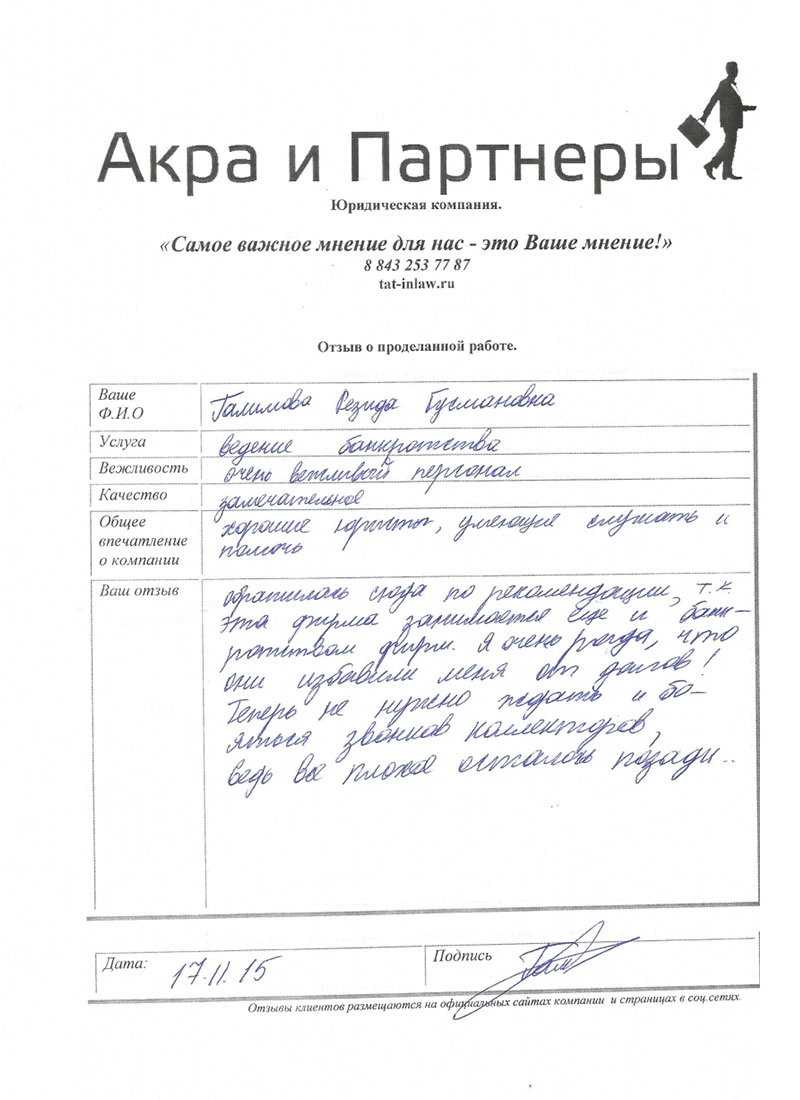 Акра и Партнеры
Юридическая компания.
«Самое важное мнение для нас - это Ваше мнение!»
8 843 253 77 87
tat-inlaw.ru
Отзыв о проделанной работе.
Ваше
Ф.И.О
Галимова Резида Гусмановна
Услуга
ведение банкротства
Вежливость
очень вежливый персонал
Качество
замечательное
Общее
впечатление
о компании
хорошие юристы, умеющие слушать и
помочь
Ваш отзыв
обратилась сюда по рекомендации, т.к.
эта фирма занимается еще и банк-
ротством фирм. Я очень рада, что
они избавили меня от долгов!
Теперь не нужно ждать и бо-
яться звонков коллекторов,
ведь все плохое осталось позади...
Дата:
17.11.15
Подпись
Отзывы клиентов размещаются на официальных сайтах компании и страницах в соц.сетях.